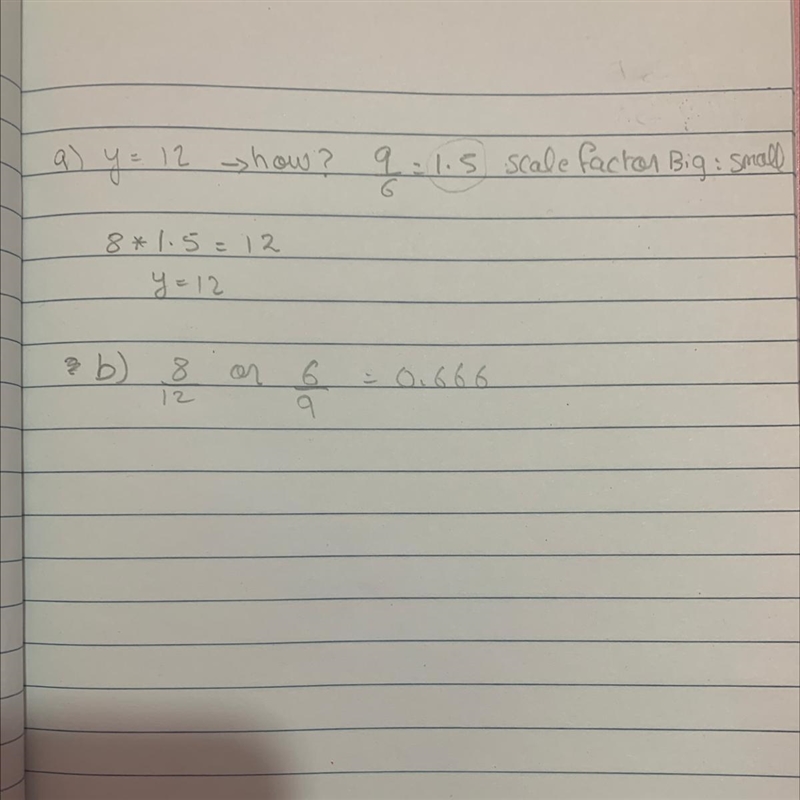 a) y = 12 → how? 9/6 = 1.5 scale factor Big : small
8 * 1.5 = 12
y = 12
b) 8/12 or 6/9 = 0.666